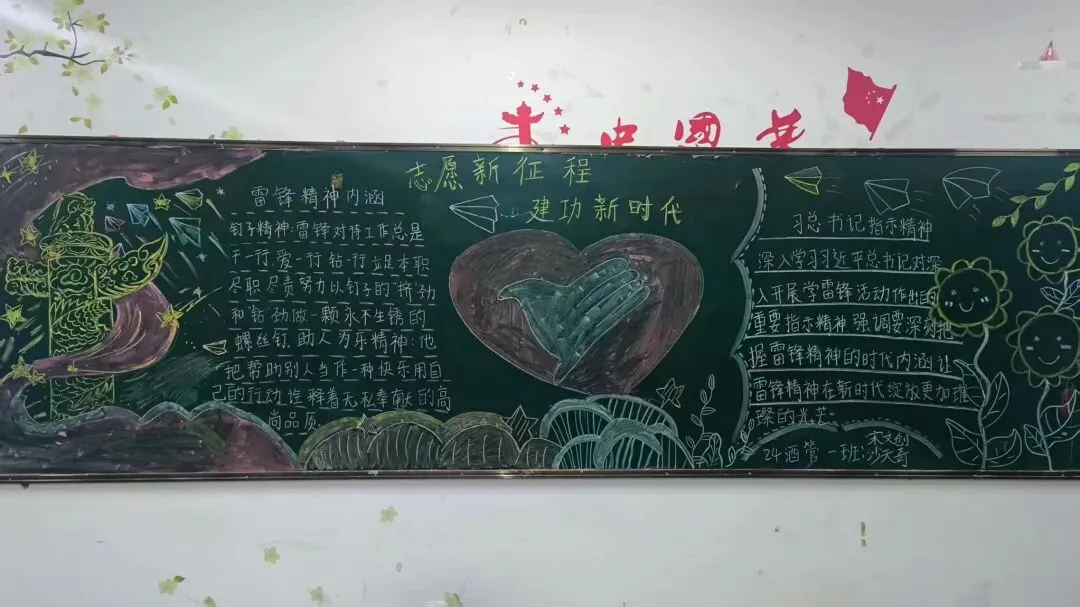 中國共
志愿新征程
建功新时代
雷锋精神内涵
钉子精神:雷锋对待工作总是
干一行爱一行钻一行立足本职
尽职尽责努力以钉子的“挤”劲
和钻劲做一颗永不生锈的
螺丝钉.助人为乐精神:他
把帮助别人当作一种快乐用自
己的行动诠释着无私奉献的高
尚品质.
习总书记指示精神
深入学习习近平总书记对深
入开展学雷锋活动作出的
重要指示精神强调要深刻把
握雷锋精神的时代内涵让
雷锋精神在新时代绽放更加璀
璨的光芒.
24酒管一班:宋文创
沙天奇